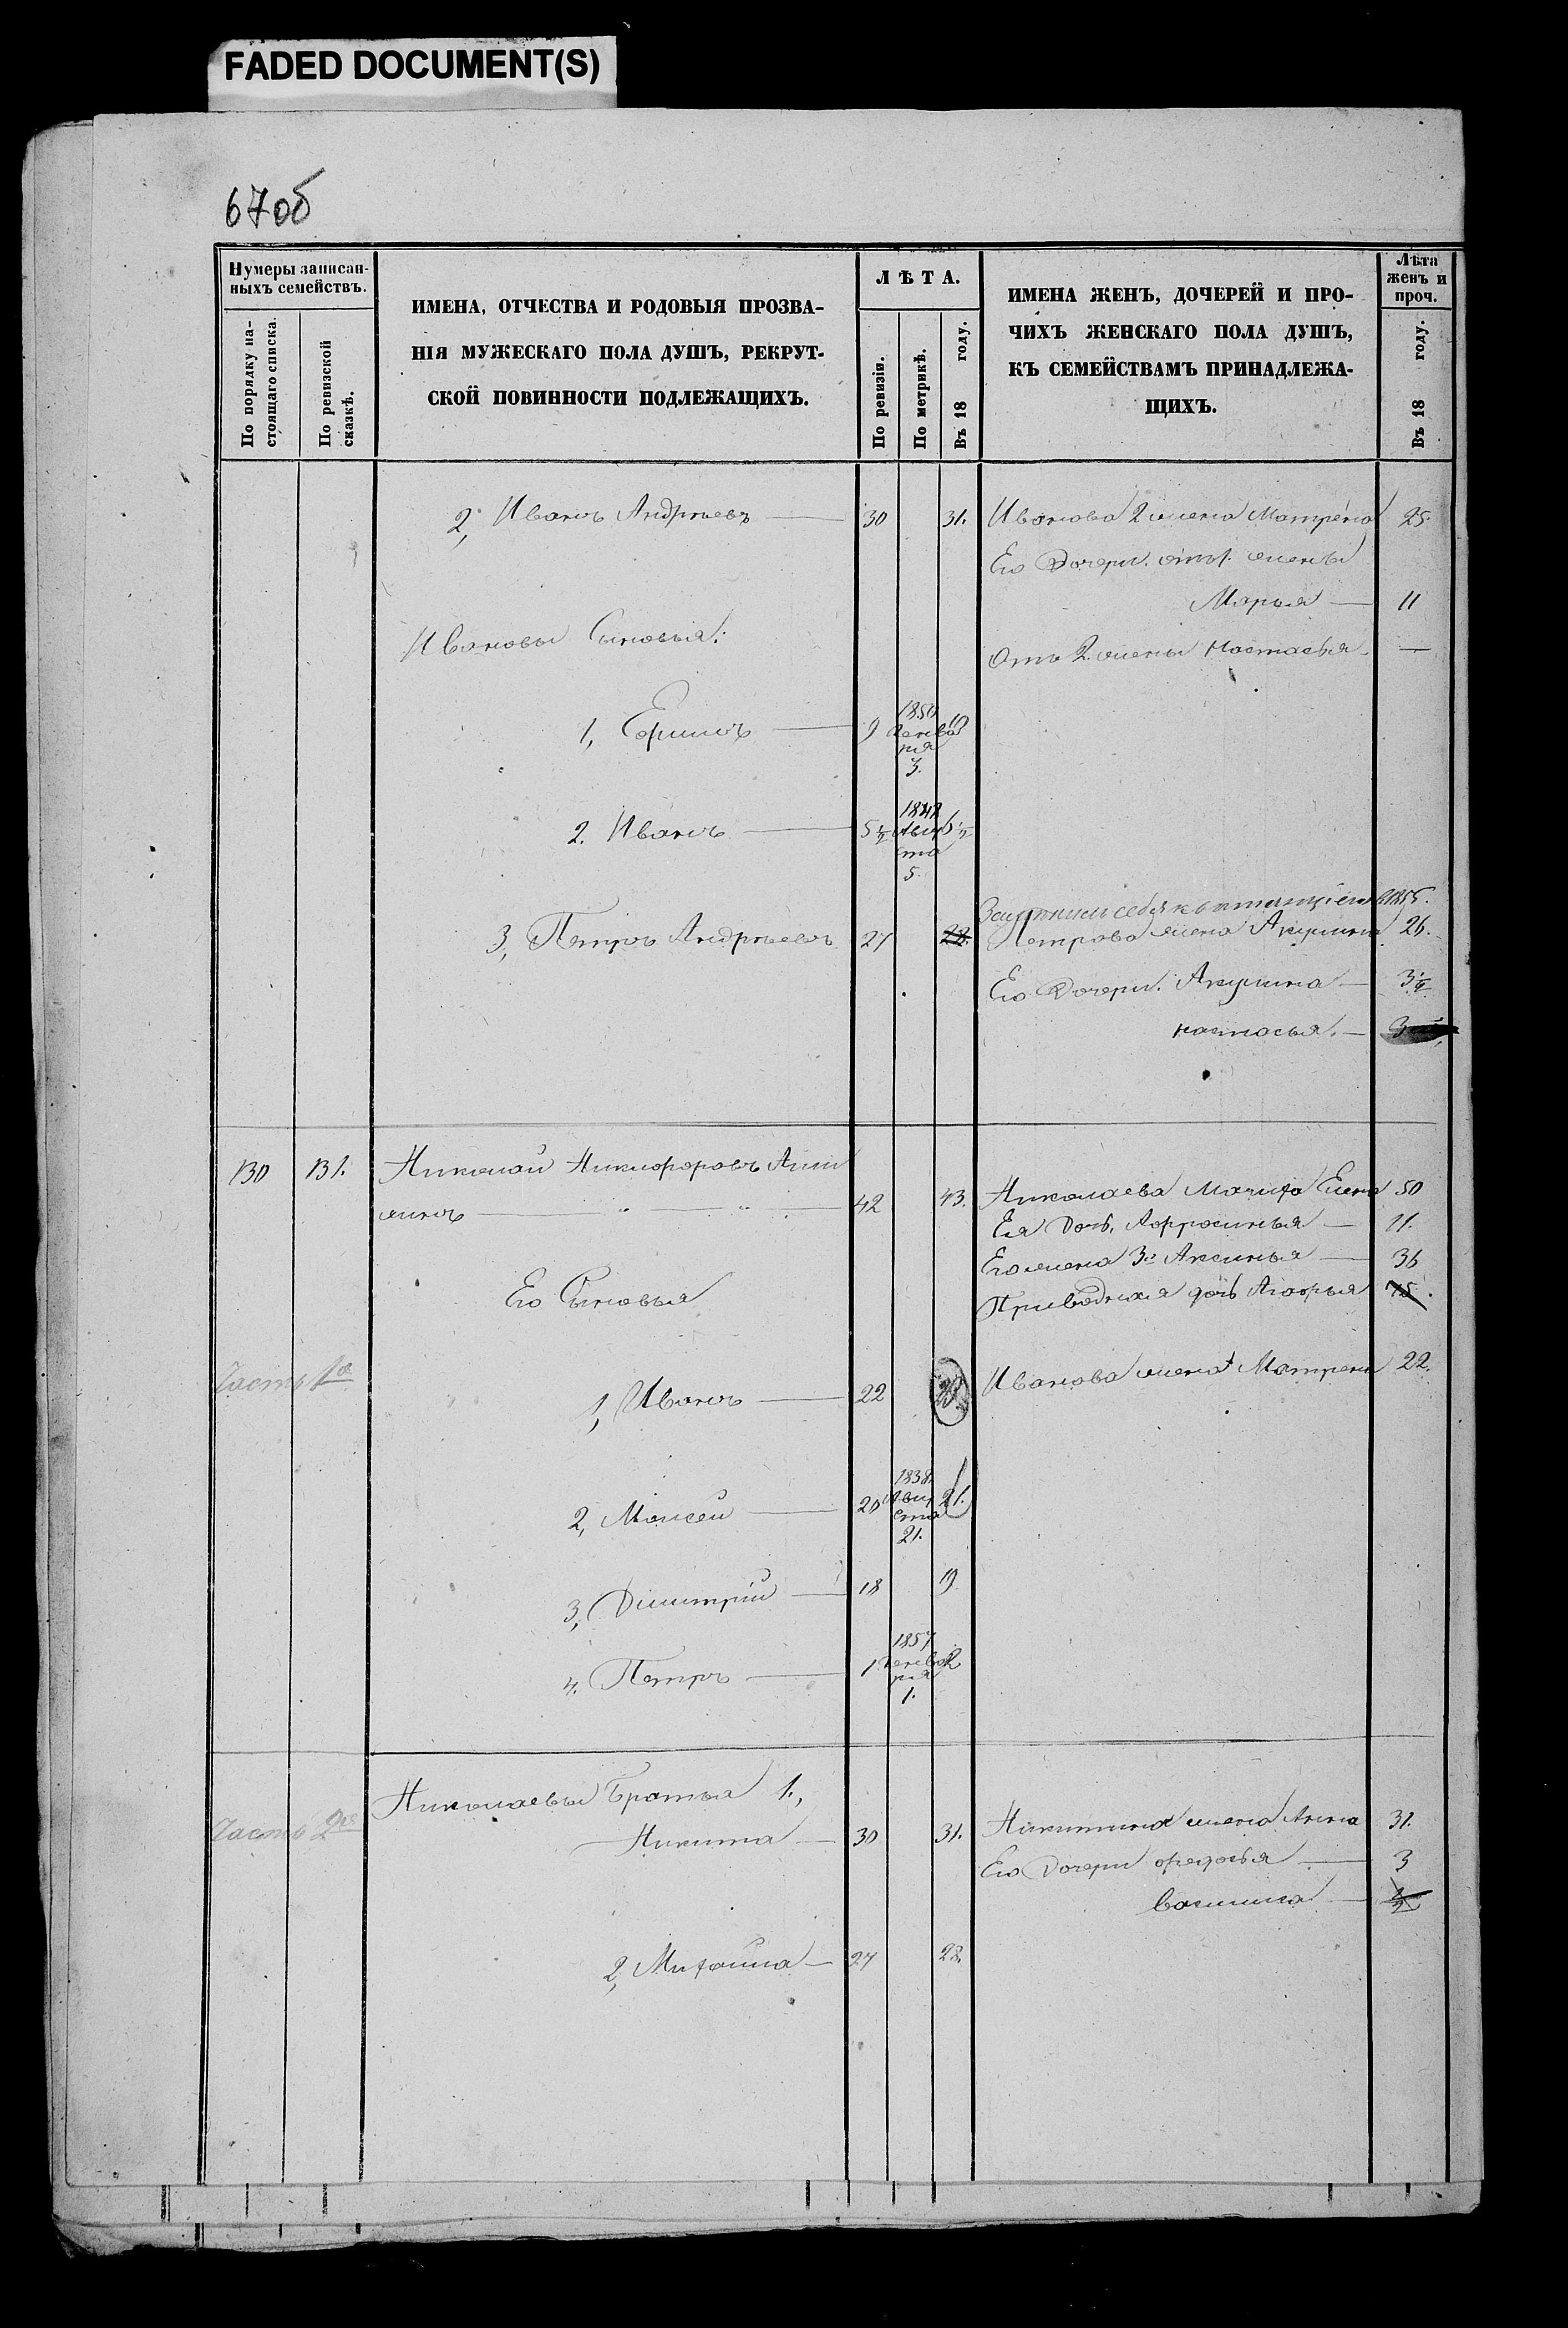 FADED DOCUMENT(S)
67об
Нумеры записан-
ныхъ семействъ.
По порядку на-
стоящаго списка.
По ревизской
сказкѣ.
ИМЕНА, ОТЧЕСТВА И РОДОВЫЯ ПРОЗВА-
НІЯ МУЖЕСКАГО ПОЛА ДУШЪ, РЕКРУТ-
СКОЙ ПОВИННОСТИ ПОДЛЕЖАЩИХЪ.
ЛѢТА.
По ревизіи.
По метрикѣ.
Въ 18 году.
ИМЕНА ЖЕНЪ, ДОЧЕРЕЙ И ПРО-
ЧИХЪ ЖЕНСКАГО ПОЛА ДУШЪ,
КЪ СЕМЕЙСТВАМЪ ПРИНАДЛЕЖА-
ЩИХЪ.
Лѣта
женъ и
проч.
Въ 18 году.
2, Иванъ Андрѣевъ — 30 31. Иванова 2 жена Матрена 25.
Его Дочери. отъ 1. жены
Марья — 11
Ивановы Сыновья:
Отъ 2. жены Настасья. —
1, Ефимъ — 9 1850 Генва ря 3. 10
2. Иванъ — 5½ Авгу ста 5. 6½
3, Петръ Андрѣевъ 27 28. Петрова жена Акулина 26.
Его Дочери. Акулина — 3¼
Настасья. —
130 131. Николай Никифоровъ
42 43. Николаева Мачиха Елена 50
Ея Дочь, Афросинья — 11.
Его жена 3я Аксинья — 36
Его Сыновья
Приводная дочь 15.
Часть 1я
1, Иванъ — 22 Иванова жена Матрена 22.
2, Моисей — 20 1838. Авгу ста 21. 21.
3, Димитрій — 18 19
4. Петръ — 1 1857 Генва ря 1. 2
Часть 2я
Николаевы Братья 1.,
Никита — 30 31. Никитина жена Анна 31.
Его Дочери Федосья — 3
Василиса —
2, Михайла — 27 28.